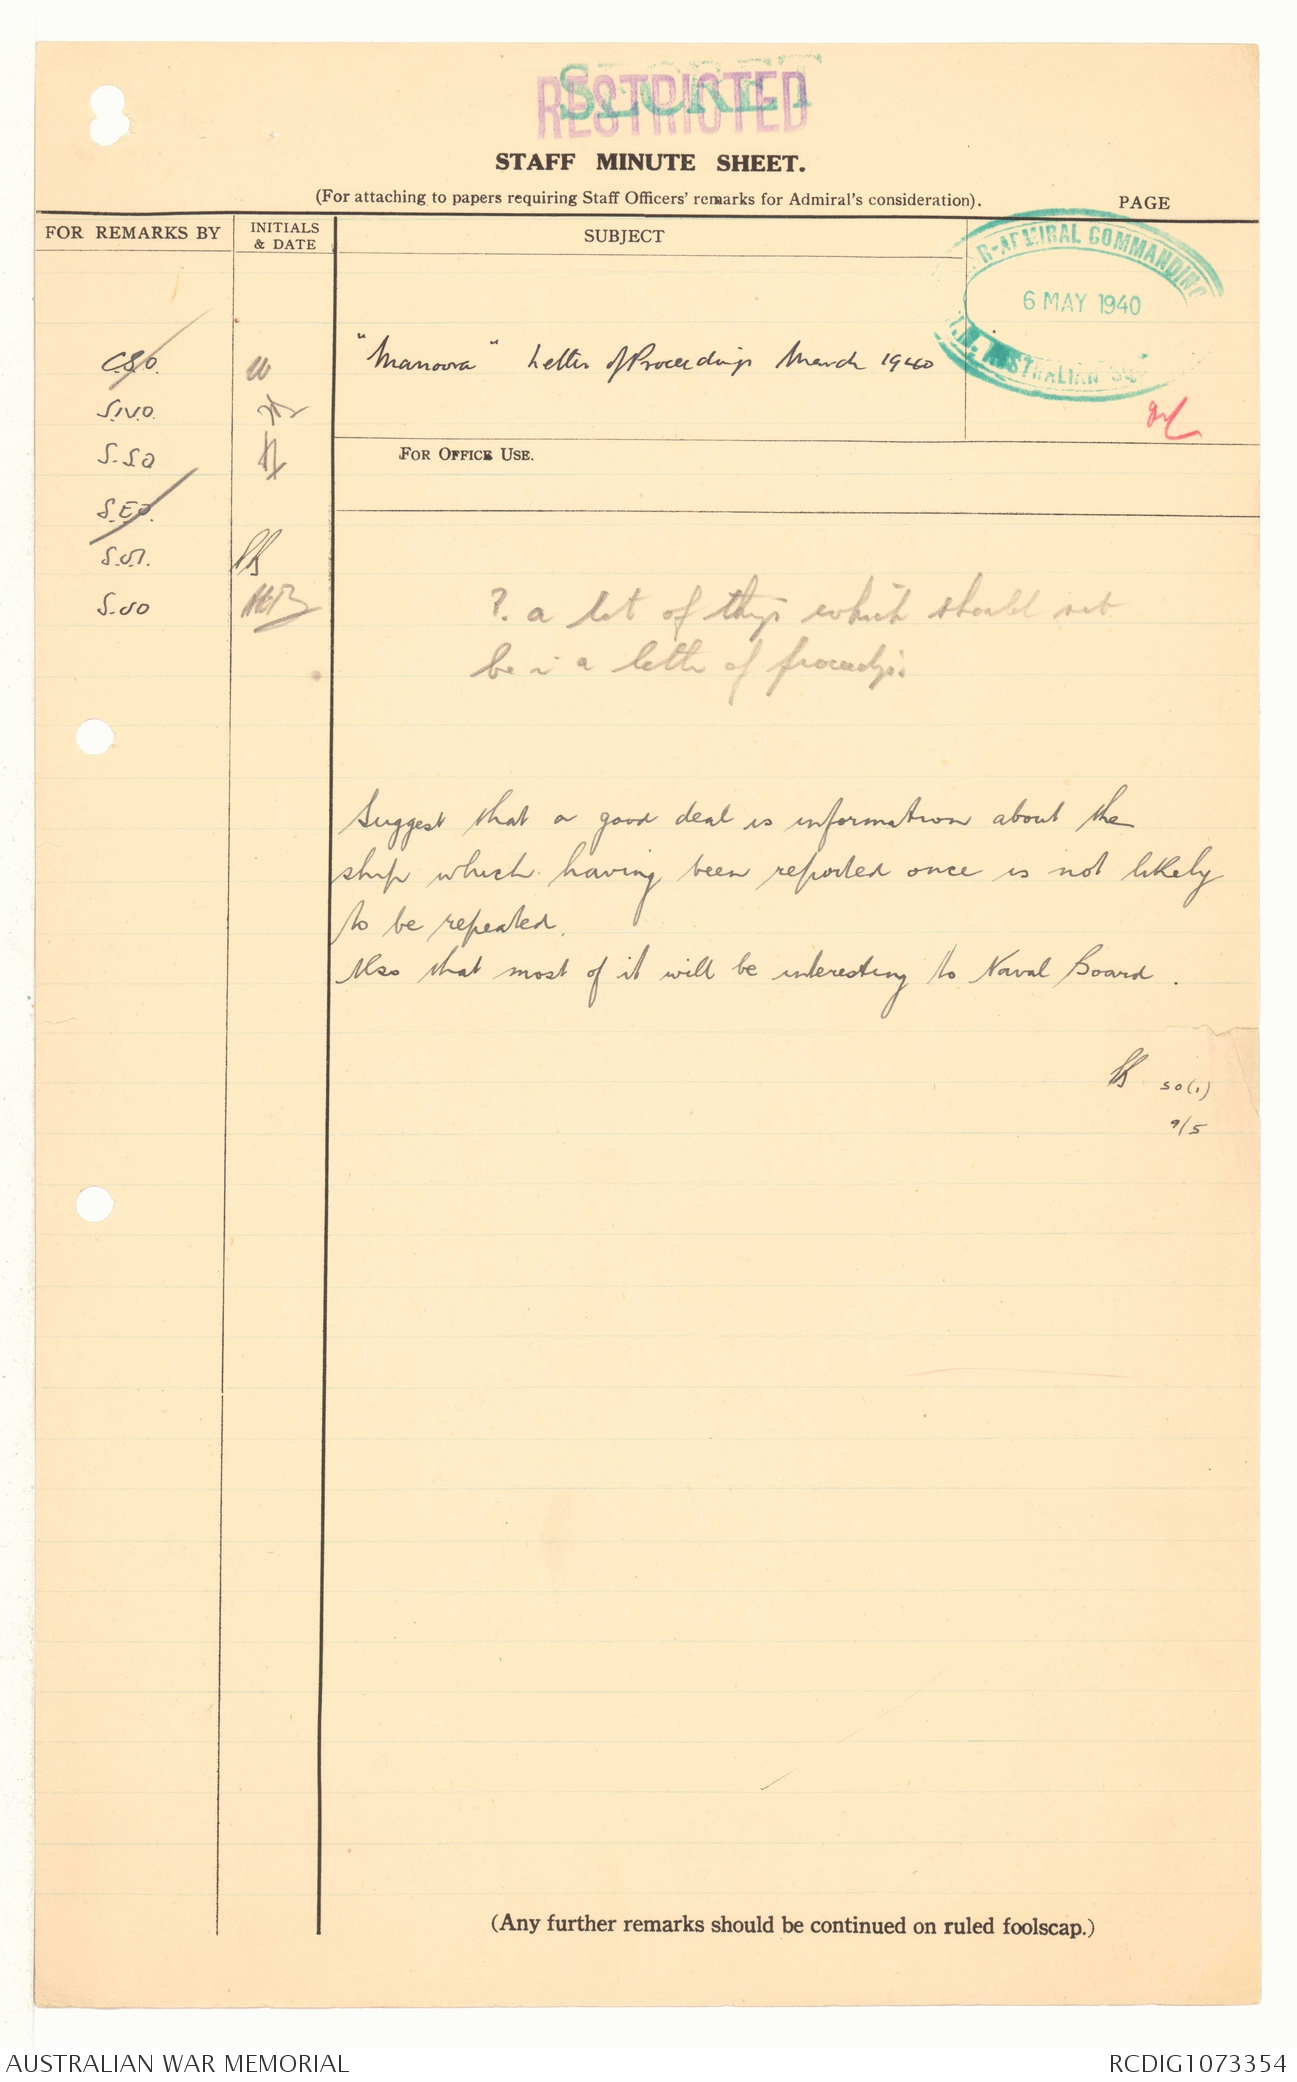 SECRET
RESTRICTED
STAFF MINUTE SHEET.
(For attaching to papers requiring Staff Officers' remarks for Admiral's consideration).
PAGE
FOR REMARKS BY
INITIALS
& DATE
SUBJECT
R-ADMIRAL COMMANDING
6 MAY 1940
AUSTRALIAN SQ
C.S.O.
"Manoora" Letter of Proceedings March 1940
S.S.O
FOR OFFICE USE.
S.E.O.
S.O.I.
S.O.O
?. a lot of things which should not
be in a letter of proceedings.
Suggest that a good deal is information about the
ship which having been reported once is not likely
to be repeated.
Also that most of it will be interesting to Naval Board.
SO(1)
9/5
(Any further remarks should be continued on ruled foolscap.)
AUSTRALIAN WAR MEMORIAL
RCDIG1073354